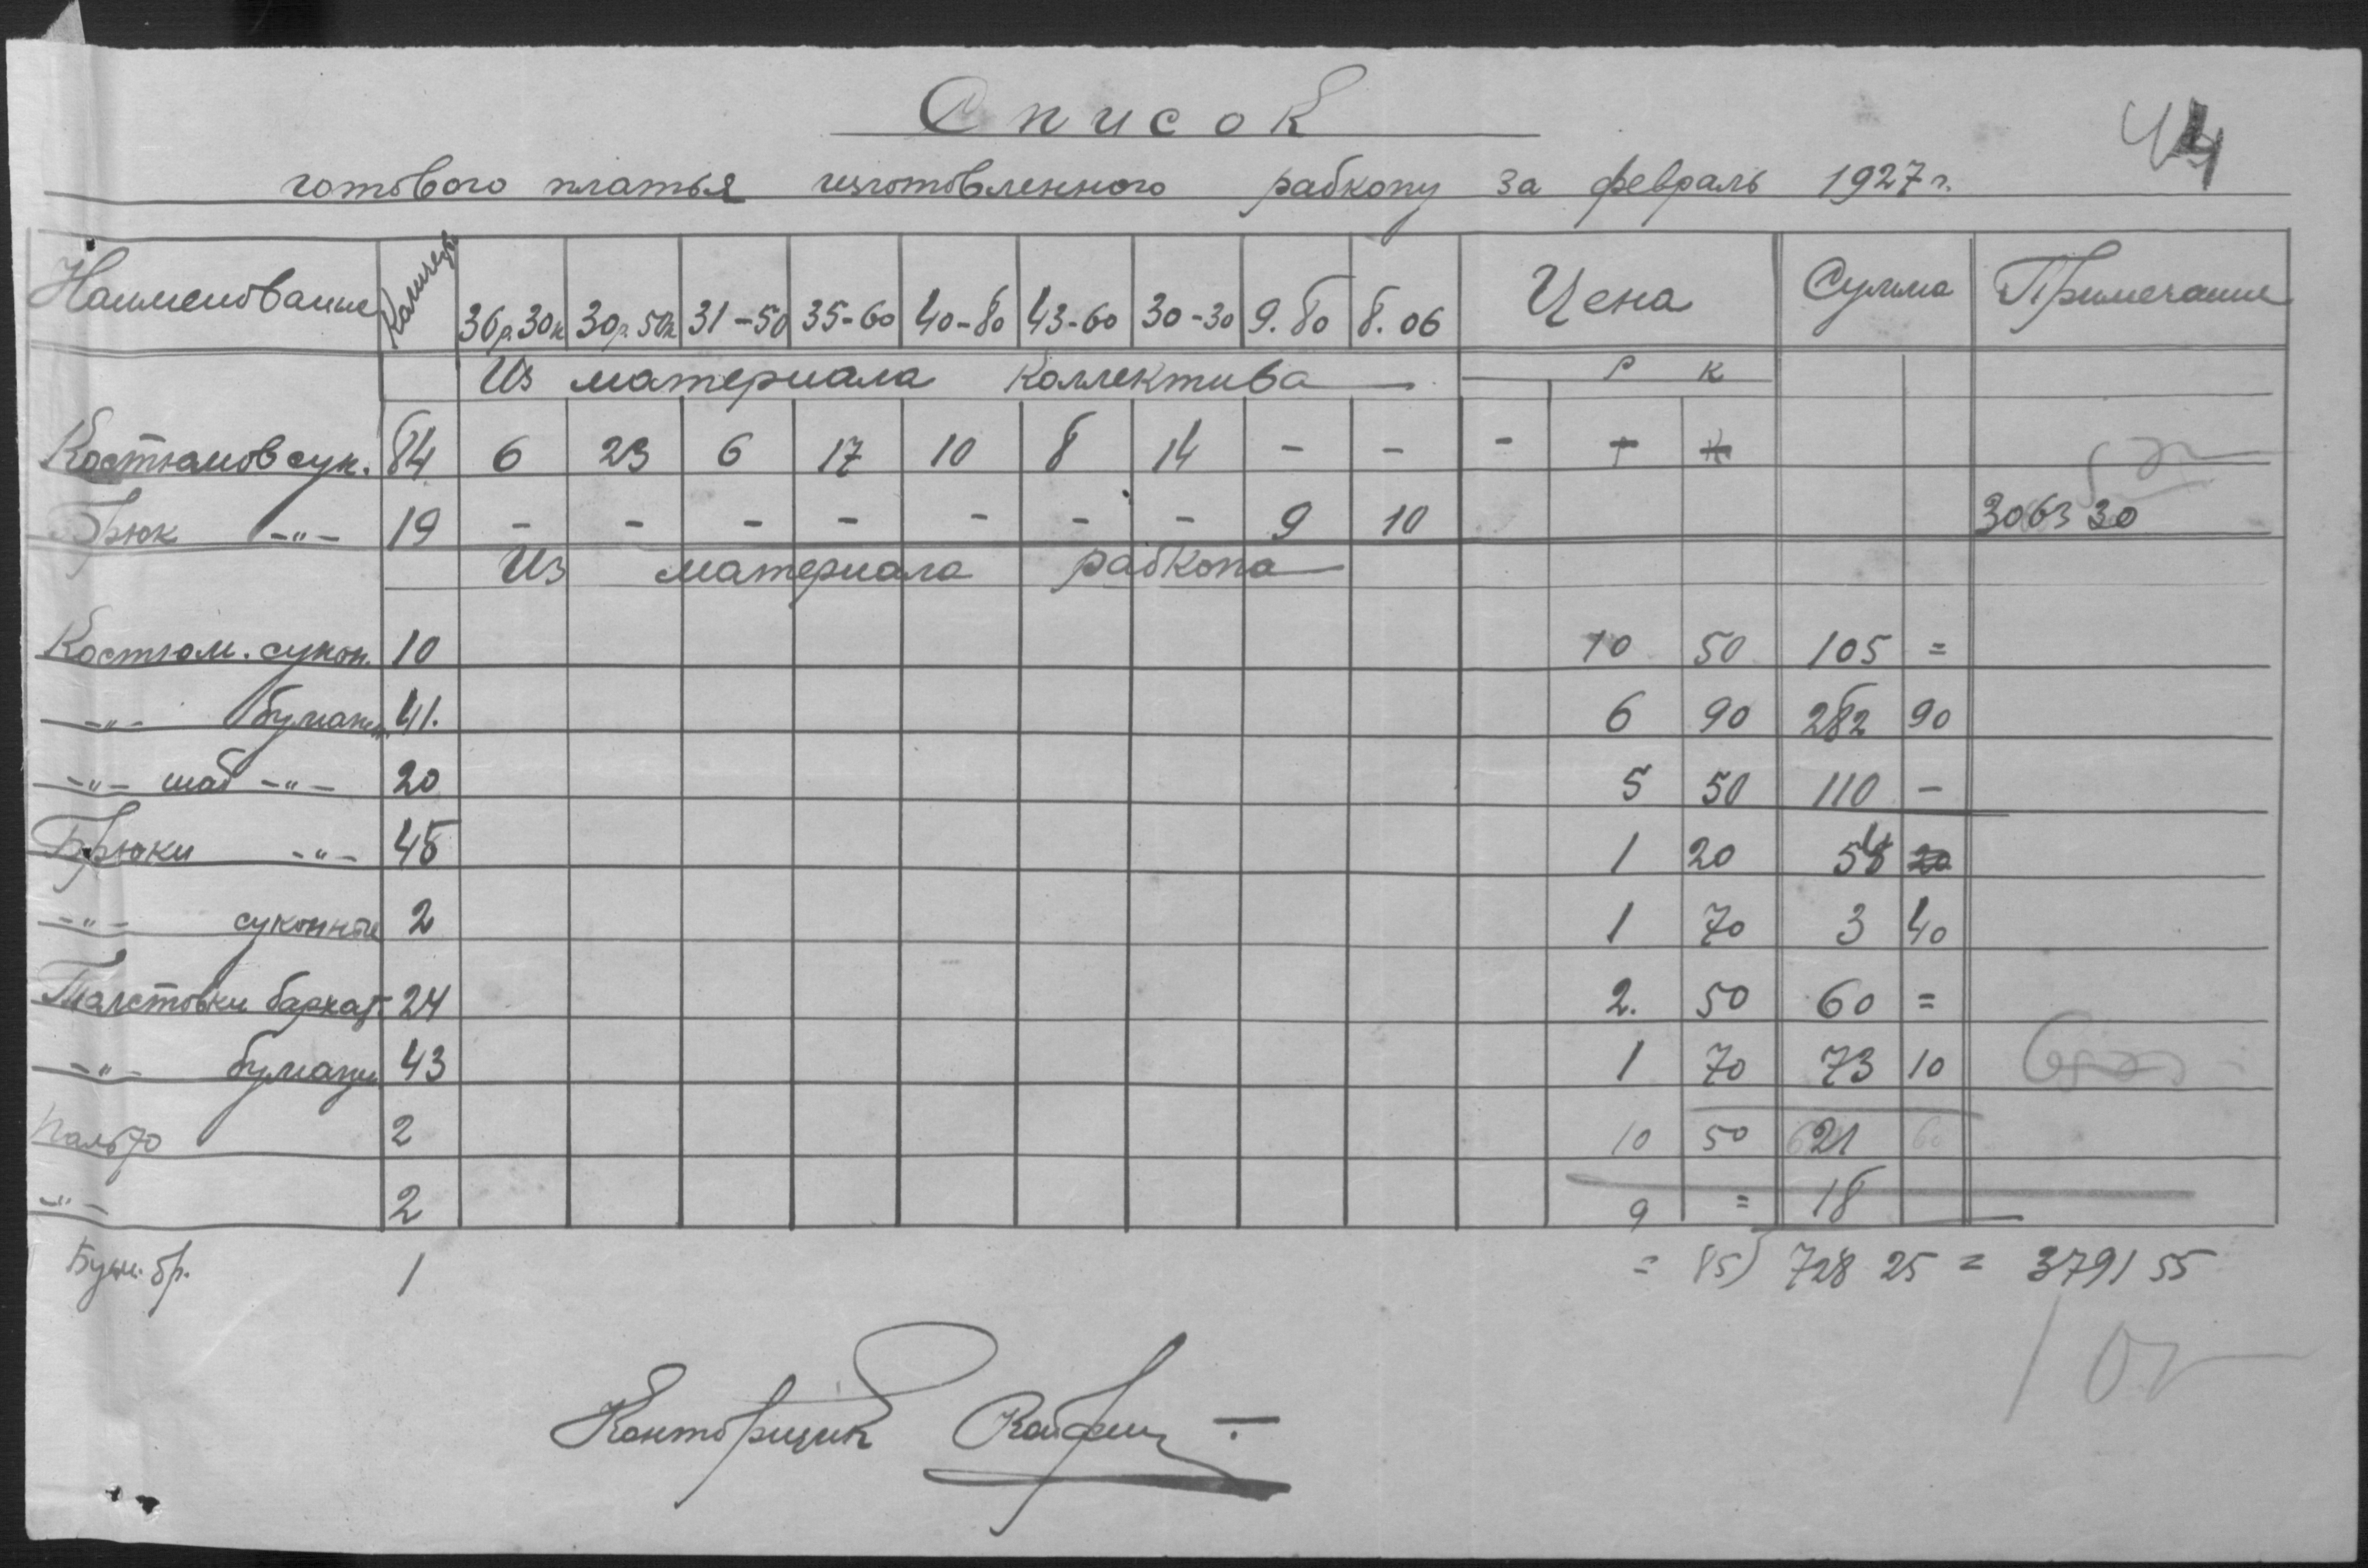 44
Список
готового платья изготовленного рабкопу за февраль 1927 г.
Наименование Количест 36р.30к 30р.50к 31-50 35-60 40-80 43-60 30-30 9.80 8.06 Цена Сумма Примечание
Из материала Коллектива р к
Костюмов сук. 84 6 23 6 17 10 8 14 - - -
Брюк -"- 19 - - - - - - - 9 10 3063 30
Из материала рабкопа
Костюм. сукон. 10 10 50 105 =
-"- бумажн. 41. 6 90 282 90
-"- шаб -"- 20 5 50 110 -
Брюки -"- 45 1 20 54
-"- суконные 2 1 70 3 40
Толстовки бархат 24 2. 50 60 =
-"- бумажн 43 1 70 73 10
Пальто 2 10 50 21
-"- 2 9 = 18
Бум. бр. 1 = 85) 728 25 = 3791 55
Конторщик